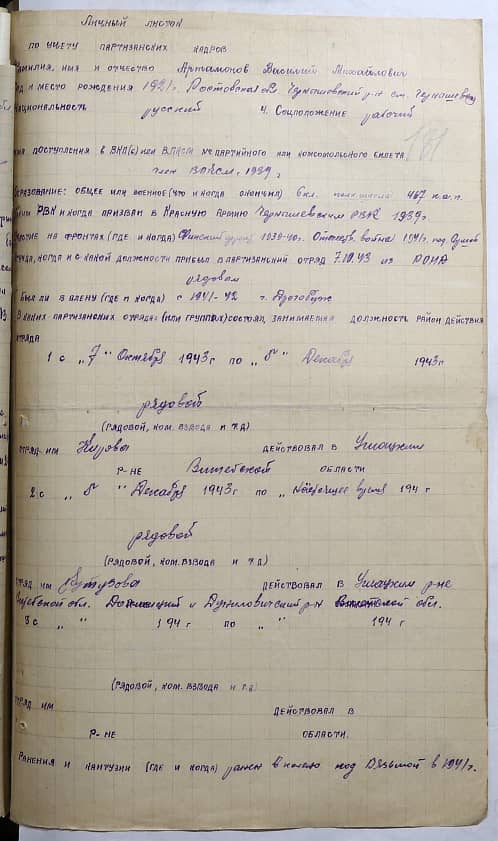 Личный листок
по учету партизанских кадров
Фамилия, имя и отчество Артамонов Василий Михайлович
Год и место рождения 1921 г. Ростовская обл.
Национальность русский 4. Соцположение рабочий
181
поступления в ВКП(б) или ВЛКСМ № партийного или комсомольского билета
член ВЛКСМ, 1939 г.
Образование: общее или военное (что и когда окончил) 6 кл. 467 к.а.п.
РВК и когда призван в Красную Армию РВК 1939 г.
на фронтах (где и когда) Финский фронт 1939-40 г. Отечеств. война 1941 г. под
когда и с какой должности прибыл в партизанский отряд 7.10.43 из РОНА
рядовой
Был ли в плену (где и когда) с 1941-42 г. Дрогобуж
В каких партизанских отрядах (или группах) состоял, занимаемая должность район действия
отряда
1 с „7" Октября 1943 г по „8" Декабря 1943 г
рядовой
(рядовой, ком. взвода и т.д)
отряд им Кирова действовал в Ушацким
р-не Витебской области
2 с „8" Декабря 1943 г по „ настоящее время 194 г
рядовой
(рядовой, ком. взвода и т.д)
отряд им Кутузова действовал в Ушацким р-не
Витебской обл. и Дуниловичский р-н обл.
3 с „ " 194 г по „ " 194 г
(рядовой, ком. взвода и т.д)
отряд им действовал в
р-не области.
Ранения и контузии (где и когда) ранен в колено под Вязьмой в 1941 г.